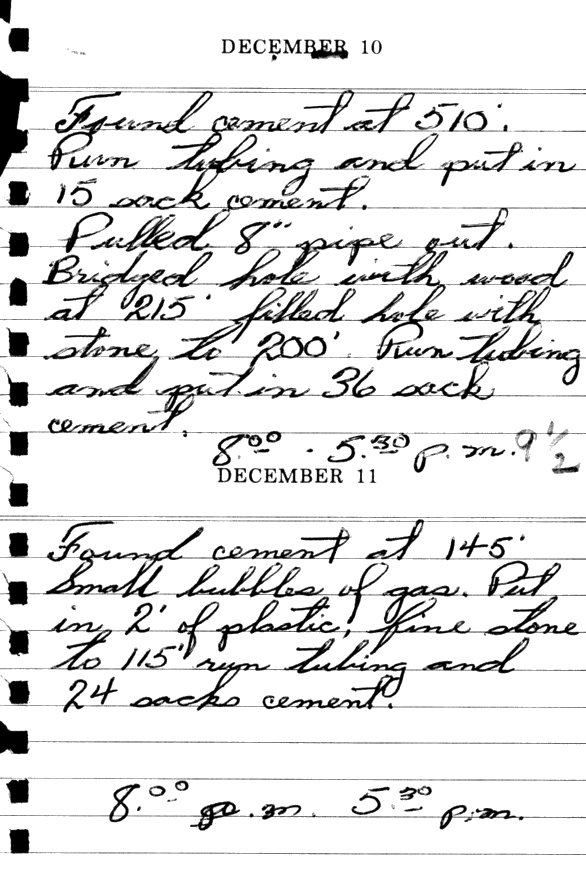 DECEMBER 10
Found cement at 510'.
Run tubing and put in
15 sack cement.
Pulled 8" pipe out.
Bridged hole with wood
at 215' filled hole with
stone to 200'. Run tubing
and put in 36 sack
cement.
8.00 - 5.30 p.m. 9 1/2
DECEMBER 11
Found cement at 145'
Small bubbles of gas. Put
in 2' of plastic, fine stone
to 115' run tubing and
24 sacks cement.
8.00 a.m. 5.30 p.m.